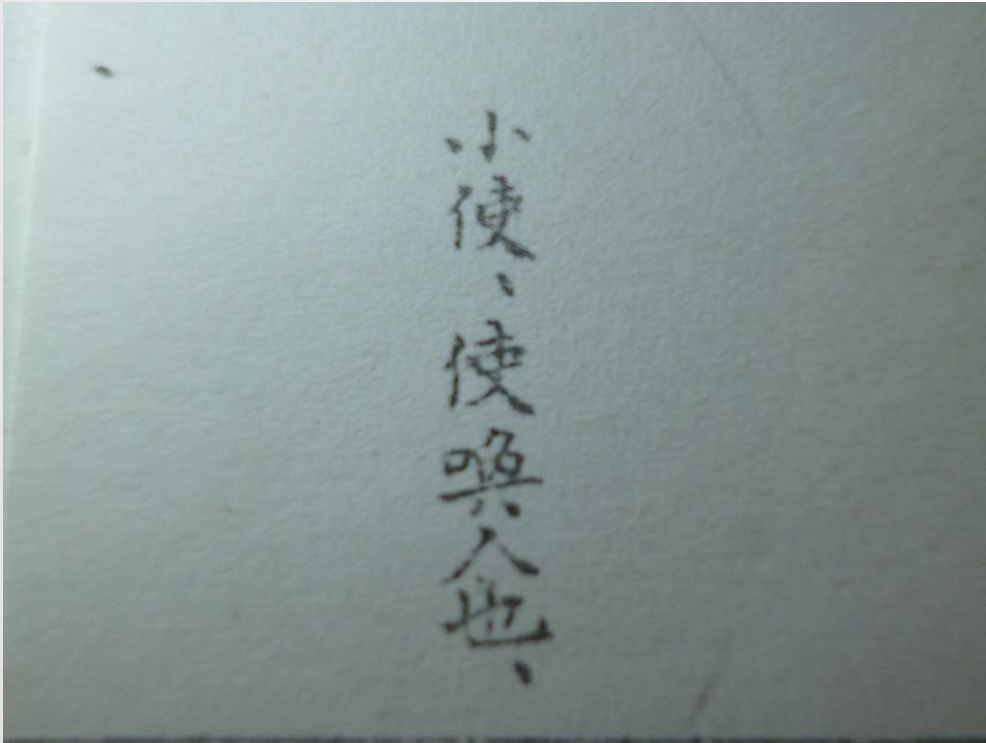 小使、使喚人也、